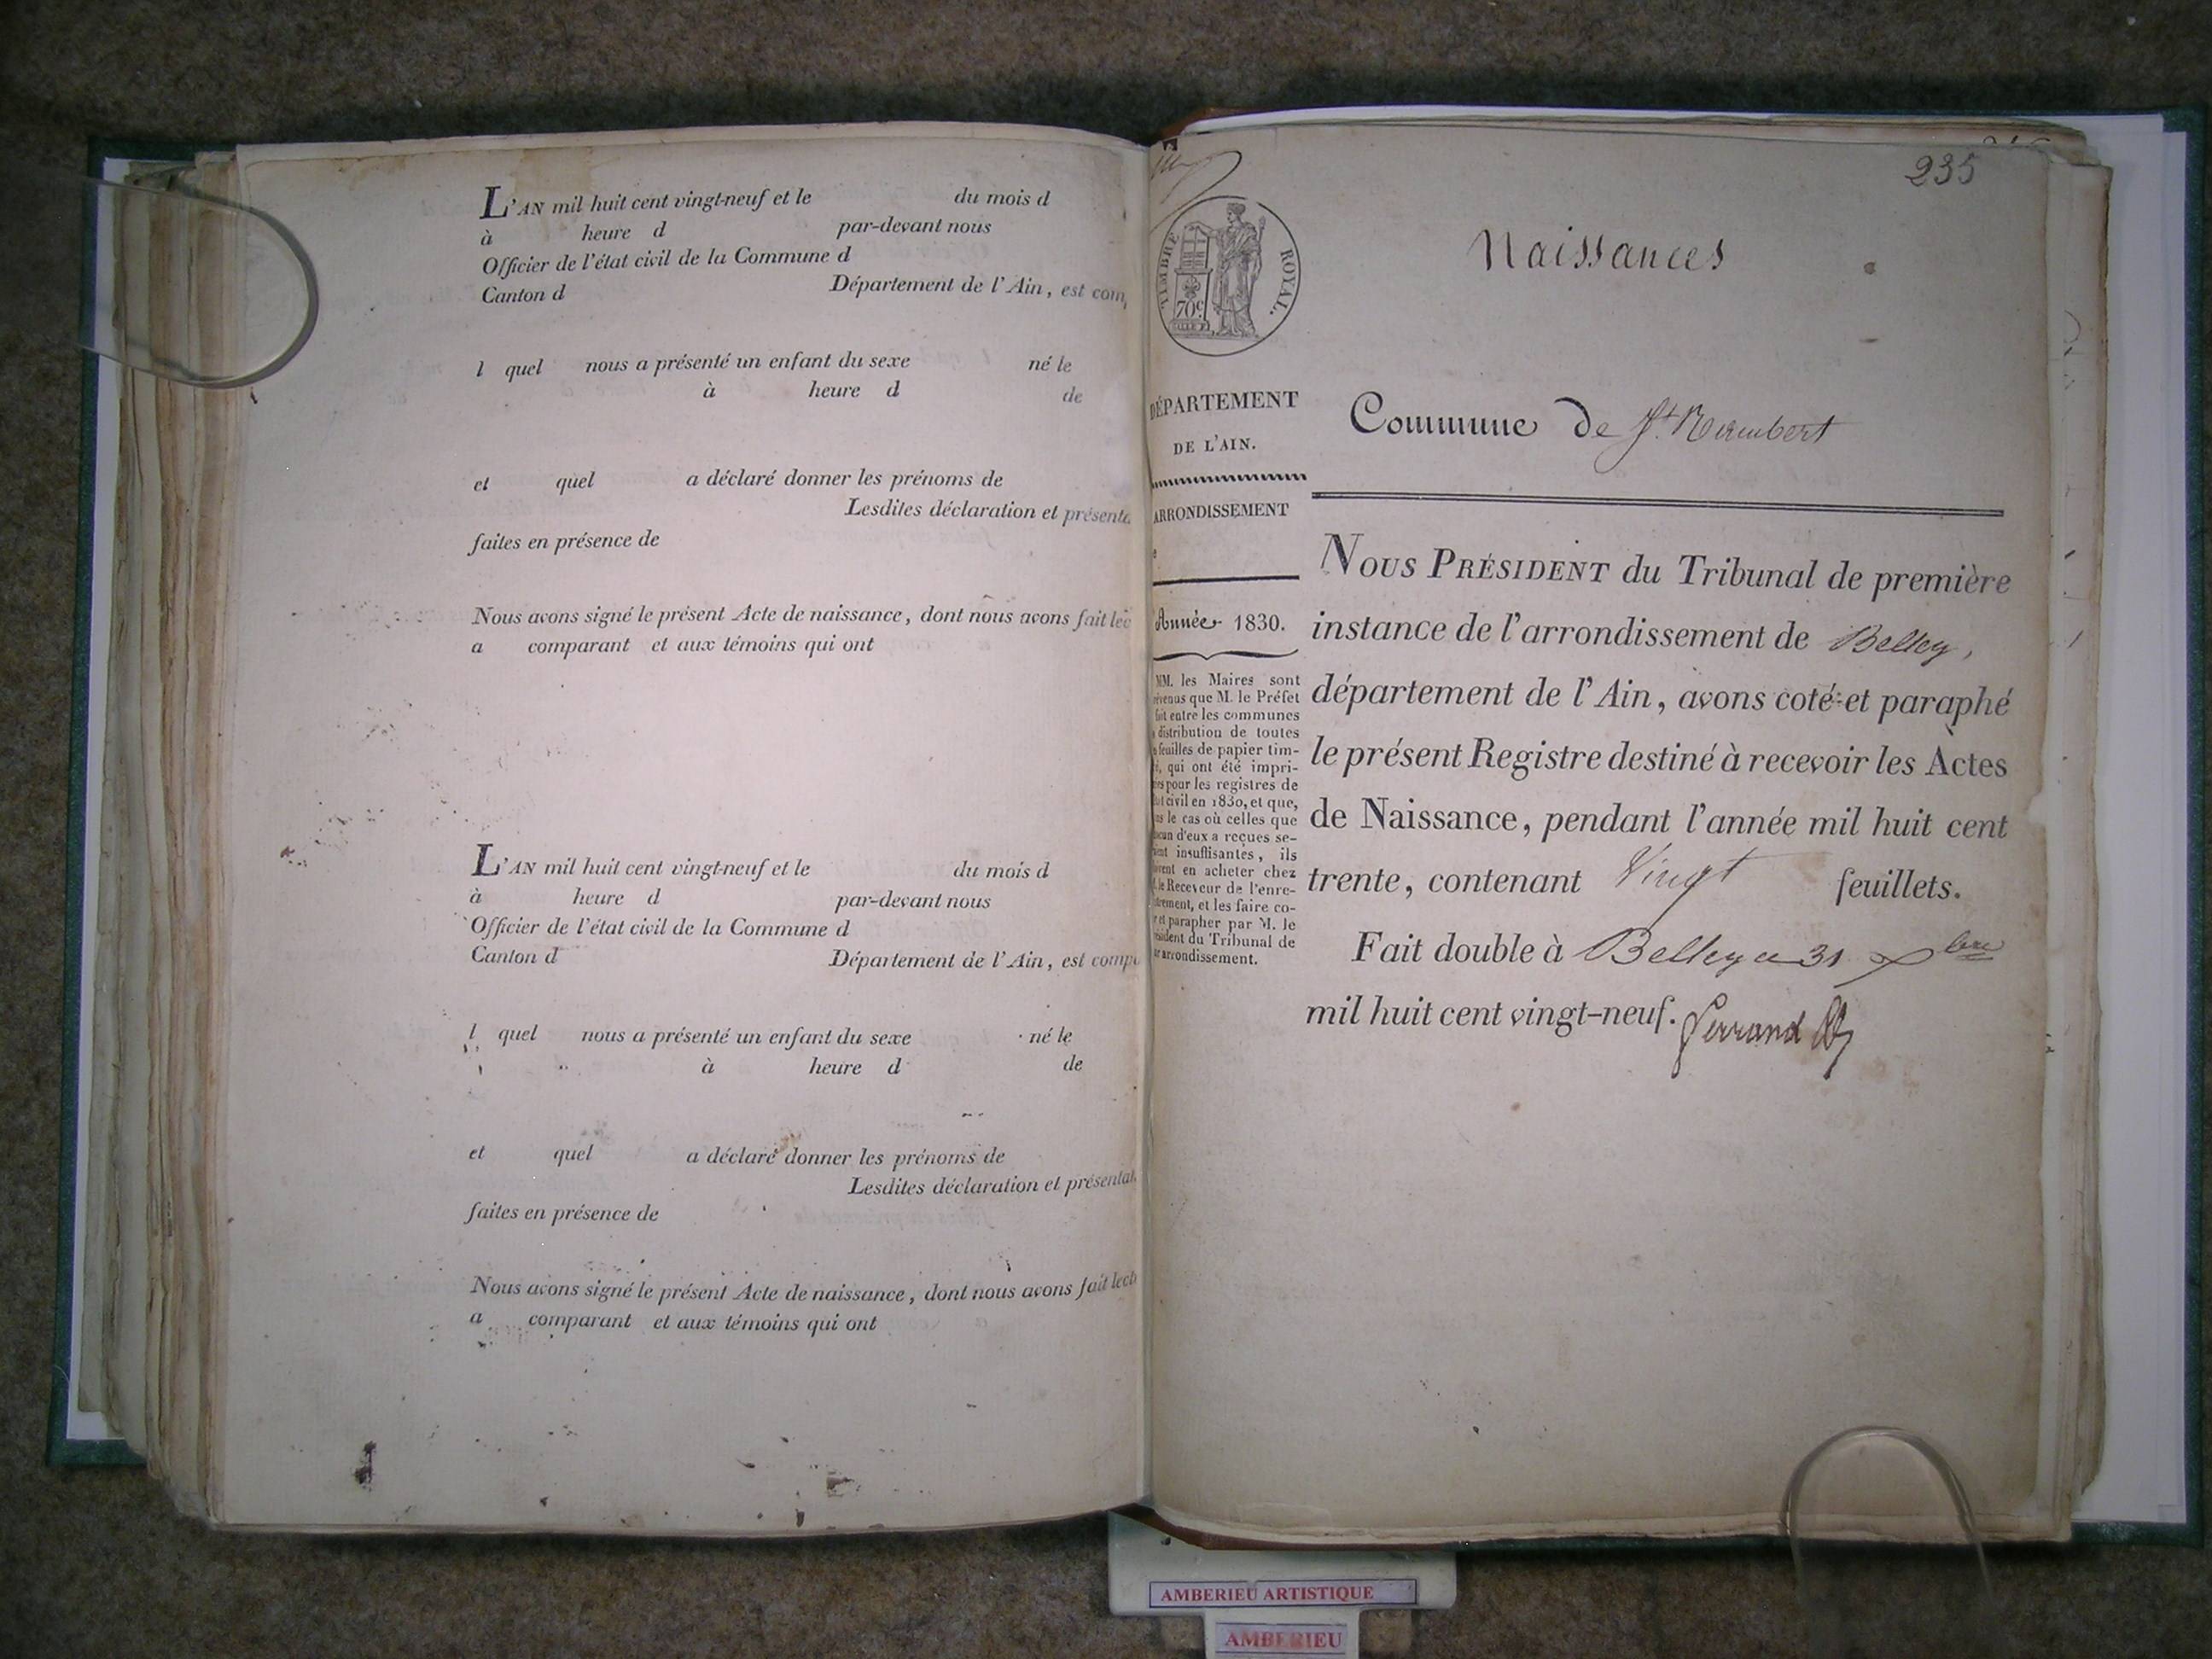 L'AN mil huit cent vingt-neuf et le du mois d
à heure d par-devant nous
Officier de l'état civil de la Commune d
Canton d Département de l'Ain, est com
l quel nous a présenté un enfant du sexe né le
à heure d de
et quel a déclaré donner les prénoms de
Lesdites déclaration et présenta
faites en présence de
Nous avons signé le présent Acte de naissance, dont nous avons fait lec
a comparant et aux témoins qui ont
L'AN mil huit cent vingt-neuf et le du mois d
à heure d par-devant nous
Officier de l'état civil de la Commune d
Canton d Département de l'Ain, est comp
l quel nous a présenté un enfant du sexe né le
à heure d de
et quel a déclaré donner les prénoms de
Lesdites déclaration et présentat
faites en présence de
Nous avons signé le présent Acte de naissance, dont nous avons fait lect
a comparant et aux témoins qui ont
235
TIMBRE ROYAL.
70c
Naissances
DÉPARTEMENT
DE L'AIN.
Commune de St. Rambert
ARRONDISSEMENT
e
Année 1830.
MM. les Maires sont
révenus que M. le Préfet
fait entre les communes
distribution de toutes
feuilles de papier tim-
é, qui ont été impri-
es pour les registres de
état civil en 1830, et que,
ns le cas où celles que
acun d'eux a reçues se-
ient insuffisantes, ils
vent en acheter chez
le Receveur de l'enre-
strement, et les faire co-
r et parapher par M. le
ésident du Tribunal de
ur arrondissement.
NOUS PRÉSIDENT du Tribunal de première
instance de l'arrondissement de Belley,
département de l'Ain, avons coté et paraphé
le présent Registre destiné à recevoir les Actes
de Naissance, pendant l'année mil huit cent
trente, contenant Vingt feuillets.
Fait double à Belley ce 31 Xbre
mil huit cent vingt-neuf.
AMBERIEU ARTISTIQUE
AMBERIEU